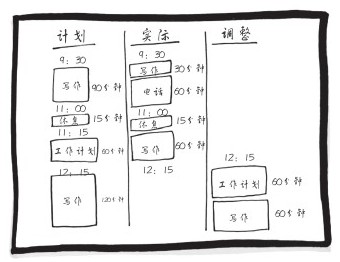 计划
9：30
写作
90分钟
11：00
休息
15分钟
11：15
工作计划
60分钟
12：15
写作
120分钟
实际
9：30
写作
30分钟
电话
60分钟
11：00
休息
15分钟
写作
60分钟
12：15
调整
12：15
工作计划
60分钟
写作
60分钟